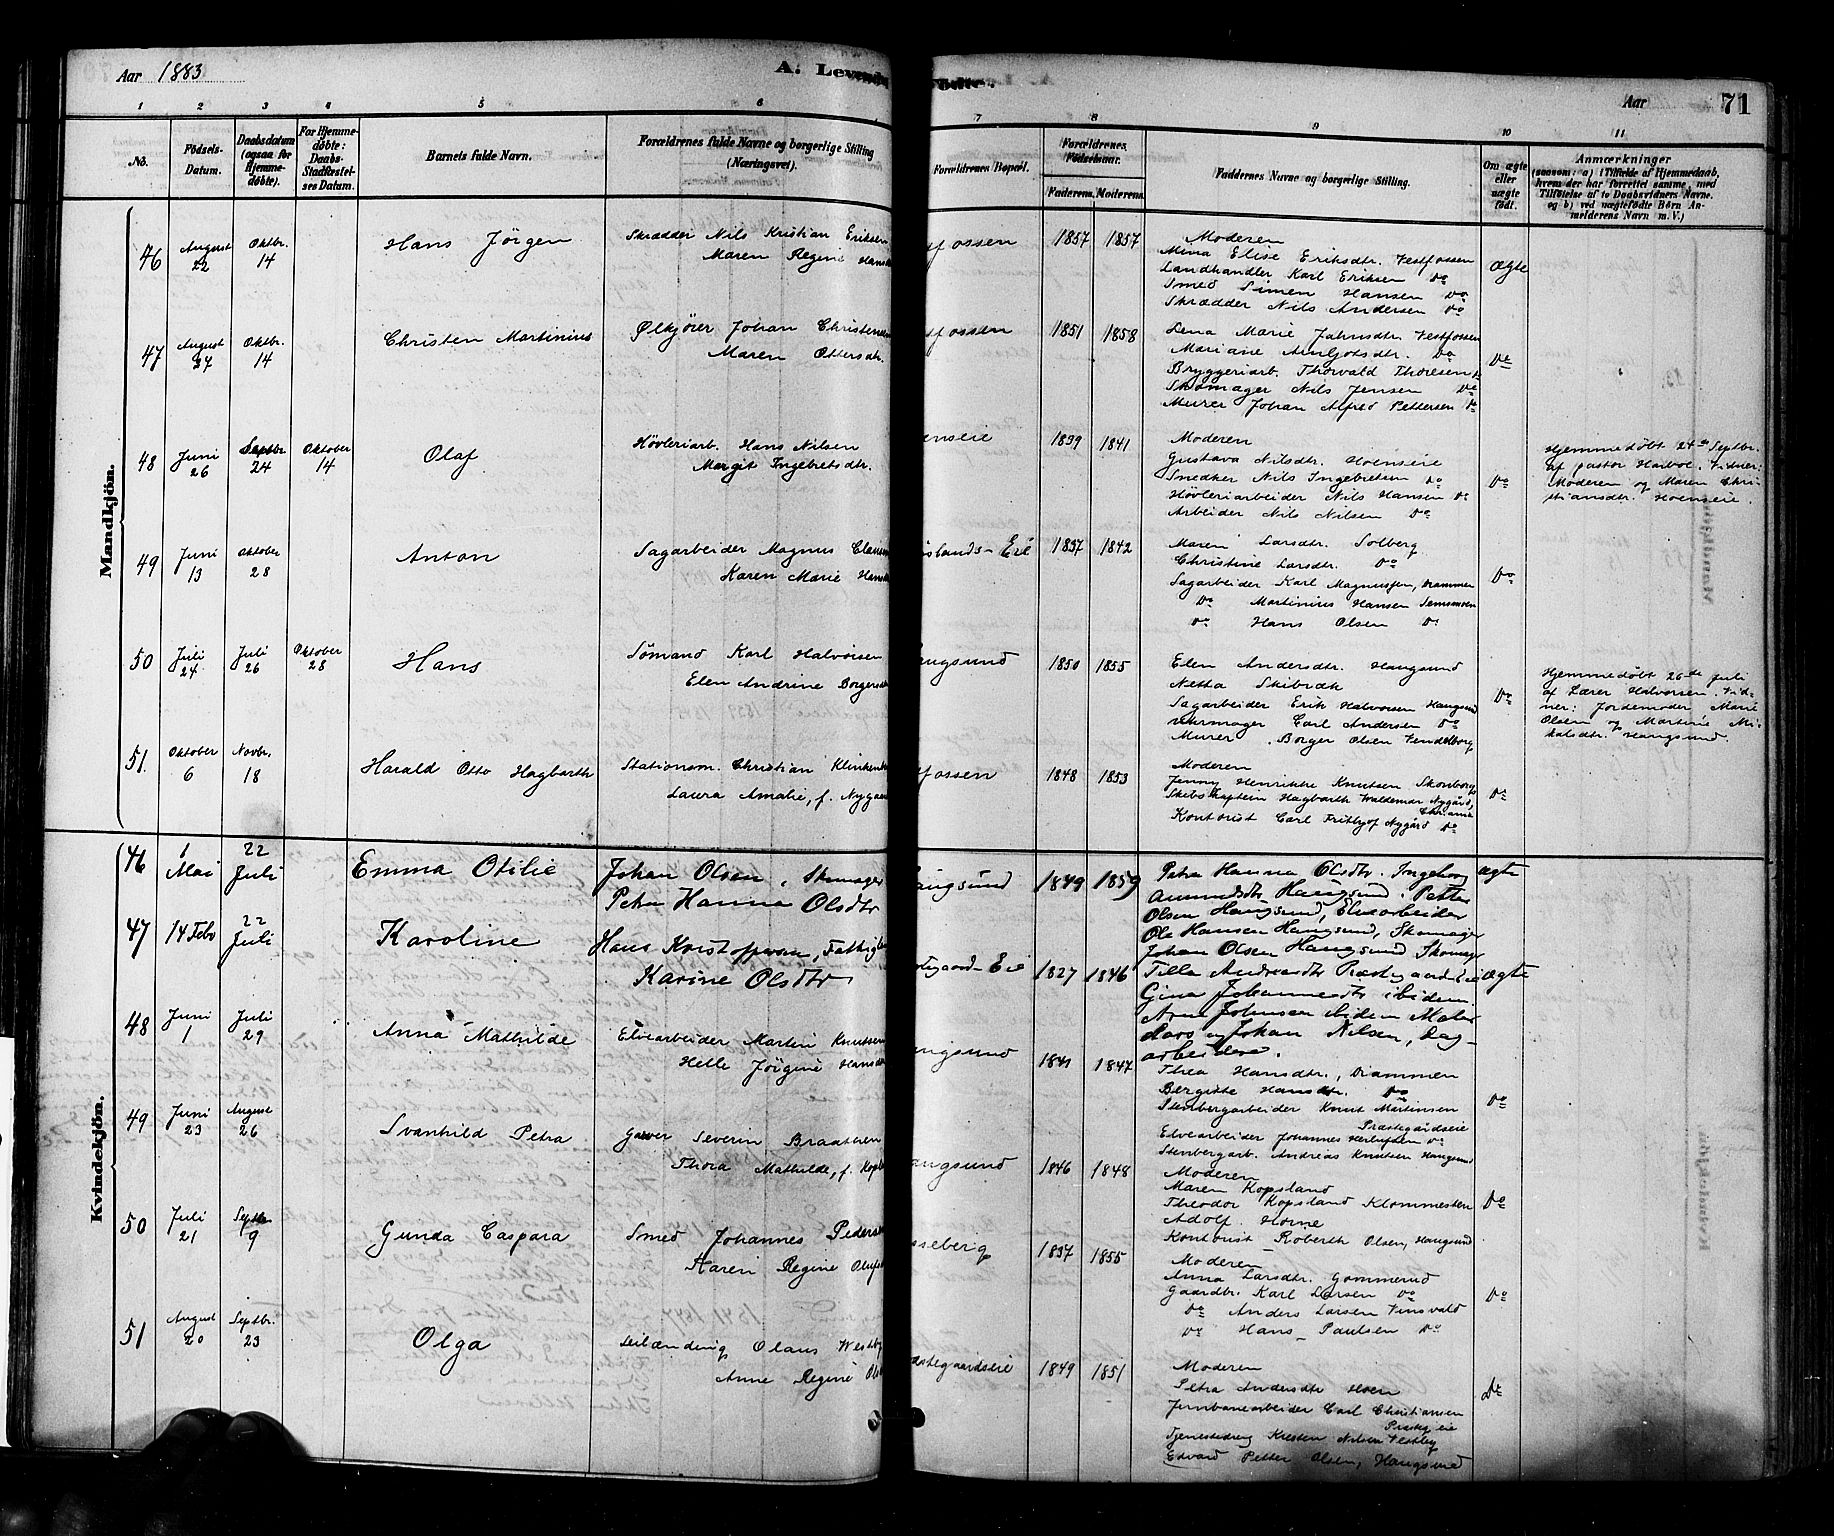 Aar 1883
A. Levende
fødte.
Aar
71
1 2 3 4 5 6 7 8 9 10 11
No.
Fødsels-Datum.
Daabsdatum (ogsaa for Hjemmedøbte).
For Hjemmedøbte: Daabs-Stadfæstelses Datum.
Barnets fulde Navn.
Forældrenes fulde Navne og borgerlige Stilling (Næringsvei).
Forældrenes Bopæl.
Forældrenes Fødselsaar.
Faderens. Moderens.
Faddernes Navne og borgerlige Stilling.
Om ægte eller uægte født.
Anmærkninger
(saasom: a) i Tilfælde af Hjemmedaab, hvem der har forrettet samme, med Tilføielse af to Daabsvidners Navne. og b) ved uægtefødte Børn Anmelderens Navn m. V.)
Mandkjön.
46 August 22 Oktbr. 14 Hans Jörgen
Skrædder Nils Kristian Eriksen
Maren Regine
ossen 1857 1857
Moderen
Mina Elise Eriksdtr. Vestfossen
Landhandler Karl Eriksen Do
Smed Simen Hansen Do
Skrædder Nils Andersen Do
Ægte
47 August 27 Oktbr. 14 Christen Martinius
Ølkjører Johan
Maren Ottersdtr.
ossen 1851 1858
Lena Marie Jahnsdtr. Vestfossen
Mariane Do
Bryggeriarb. Thorvald Thoresen Do
Skomager Nils Jensen Do
Murer Johan Alfred Pettersen Do
Do
48 Juni 26 Septbr. 24 Oktober 14 Olaf
Høvleriarb. Hans Nilsen
Margit Ingebretsdtr.
enseie 1839 1841
Moderen
Gustava Nilsdtr. Hoenseie
Snedker Nils Ingebretsen Do
Høvleriarbeider Nils Hansen Do
Arbeider Nils Nilsen Do
Do
Hjemmedøbt 24de Septbr.
af pastor. Vidner:
Moderen og Maren Chri-
stiansdtr. Hoenseie.
49 Juni 13 Oktober 28 Anton
Sagarbeider Magnus
Karen Marie
slands-Eie 1837 1842
Maren Larsdtr. Solberg
Christine Larsdtr. Do
Sagarbeider Karl Magnussen, Drammen
Do Martinius Hansen
Do Hans Olsen Do
Do
50 Juli 24 Juli 26 Oktober 28 Hans
Sømand Karl Halvorsen
Elen Andrine
ugsund 1850 1855
Elen Andersdtr. Haugsund
Netta
Sagarbeider Erik Halvorsen Haugsund
Urmager Carl Andersen Do
Murer Borger Olsen Vendelborg
Do
Hjemmedøbt 26de Juli
af Lærer Halvorsen. Vid-
ner: Jordemoder Marie
Olsen og Martine Mi-
kalsdtr. Haugsund.
51. Oktober 6 Novbr. 18 Harald Otto Hagbarth
Stationsm. Christian
Laura Amalie, f.
fossen 1848 1853
Moderen
Jenny Henrikke Knutsen
Skibskaptein Hagbarth Waldemar Nygård,
Christiania
Kontorist Carl Frithjof Nygård Do
Do
Kvindekjön.
46 1 Mai 22 Juli Emma Otilie
Johan Olsen, Skomager
Petra Hanna Olsdtr
augsund 1849 1859
Petra Hanna Olsdtr. Ingeborg
Amundsdtr Haugsund. Petter
Olsen Haugsund, Elvearbeider
Ole Hansen Haugsund, Skomager
Johan Olsen Haugsund Skomager
ægte
47 14 Feb 22 Juli Karoline
Hans Kristoffersen,
Karine Olsdtr
gaard-Eie 1827 1846
Tilla Andreasdtr
Gina Johannesdtr ibidem
Arne Johnsen ibidem
Johan Nilsen, Dag-
arbeidere.
ægte
48 Juni 1 Juli 29 Anna Mathilde
Elvearbeider Martin Knutsen
Helle Jörgine
ngsund 1841 1847
Thea Hansdtr., Drammen
Bergitte Hansdtr. Do
Stenbergarbeider Knut Martinsen
Præstegårdseie
Elvearbeider Johannes Do
Stenbergarb. Andreas Knutsen Haugsund
Do
49 Juni 23 August 26 Svanhild Petra
Garver Severin Braathen
Thora Mathilde, f.
angsund 1846 1848
Moderen
Maren Kopsland
Theodor Kopsland
Adolf Horne
Kontorist Roberth Olsen, Haugsund
Do
50 Juli 21 Septbr. 9 Gunda Caspara
Smed Johannes
Karen Regine
seberg 1837 1855
Moderen
Anna Larsdtr. Gommerud
Gaardbr. Karl Larsen Do
Do Anders Larsen
Do Hans Paulsen Do
Do
51 August 20 Septbr. 23 Olga
Leilænding Olaus
Anne Regine
stegaardseie 1849 1851
Moderen
Petra Andersdtr Hoen
Jernbanearbeider Carl Christiansen
Tjenestedreng Kresten Nilsen Vestby
Edvard Petter Olsen, Haugsund
Do